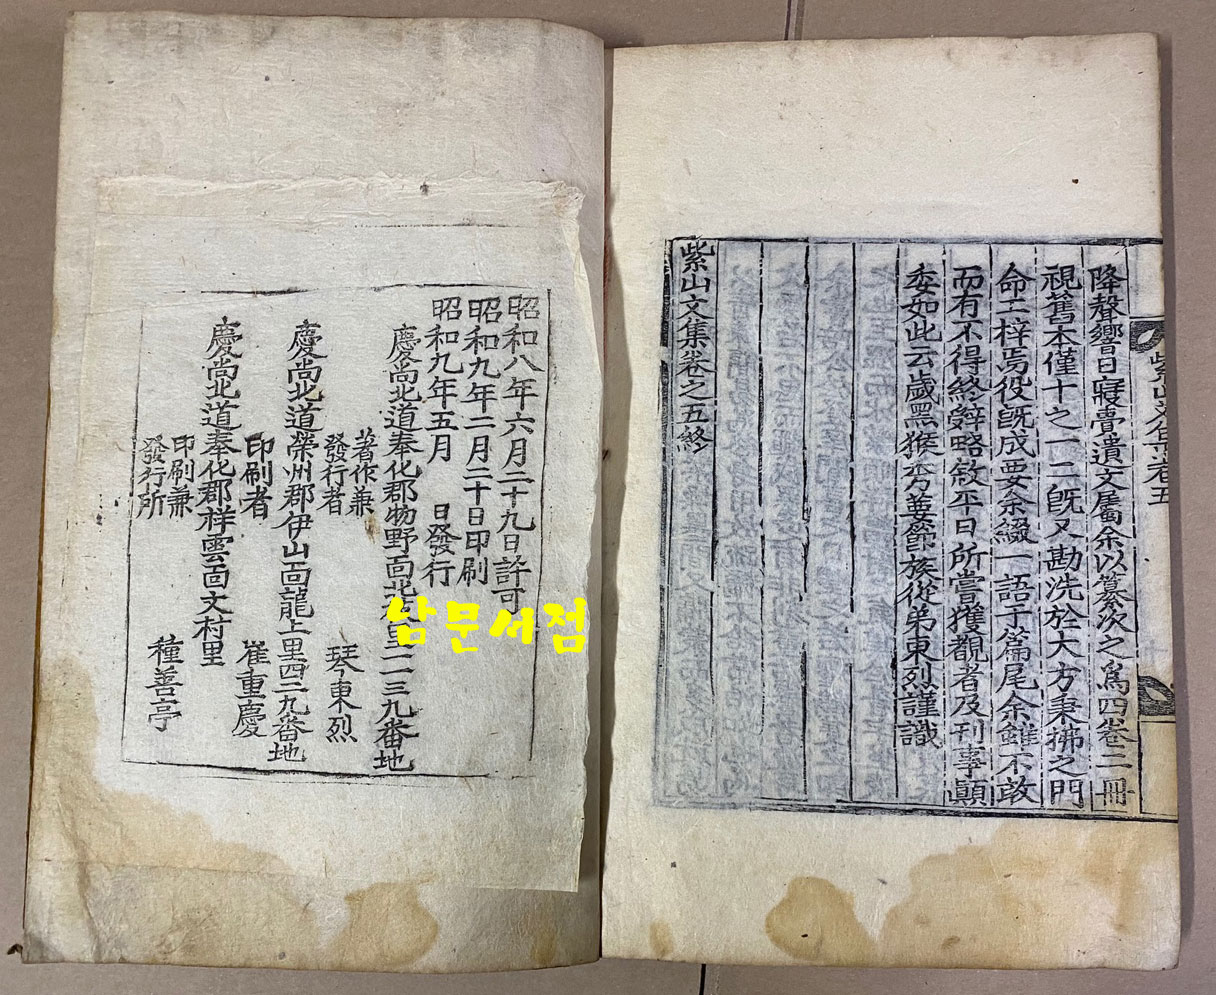 紫山文集卷五
降聲響日寢遺文屬余以纂次之爲四卷二冊
視舊本僅十之一二旣又勘洗於大方秉拂之門
命工梓焉役旣成要余綴一語于篇尾余雖不敢
而有不得終辭略敘平日所嘗獲觀者及刊事顚
委如此云歲黑猴蓂節族從弟東烈謹識
紫山文集卷之五終
昭和八年六月二十九日許可
昭和九年二月二十日印刷
昭和九年五月 日發行
慶尙北道奉化郡物野面北里一二三九番地
著作兼
發行者 琴東烈
慶尙北道榮州郡伊山面龍上里四二九番地
印刷者 崔重慶
慶尙北道奉化郡祥雲面文村里
印刷兼
發行所 種善亭
남문서점